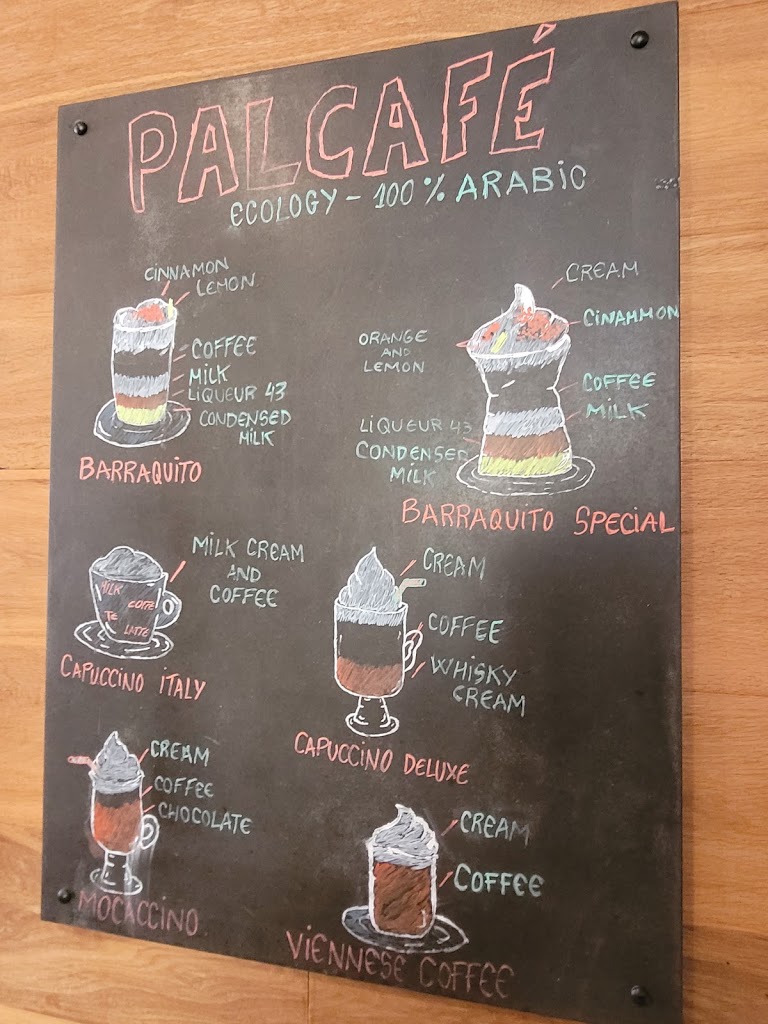 PALCAFÉ
ECOLOGY - 100 % ARABIC
CINNAMON
LEMON
COFFEE
MILK
LIQUEUR 43
CONDENSED
MILK
BARRAQUITO
CREAM
CINAMMON
ORANGE
AND
LEMON
COFFEE
MILK
LIQUEUR 43
CONDENSED
MILK
BARRAQUITO SPECIAL
MILK CREAM
AND
COFFEE
MILK
COFFE
TE
LATTE
CAPUCCINO ITALY
CREAM
COFFEE
WHISKY
CREAM
CAPUCCINO DELUXE
CREAM
COFFEE
CHOCOLATE
MOCACCINO
CREAM
COFFEE
VIENNESE COFFEE